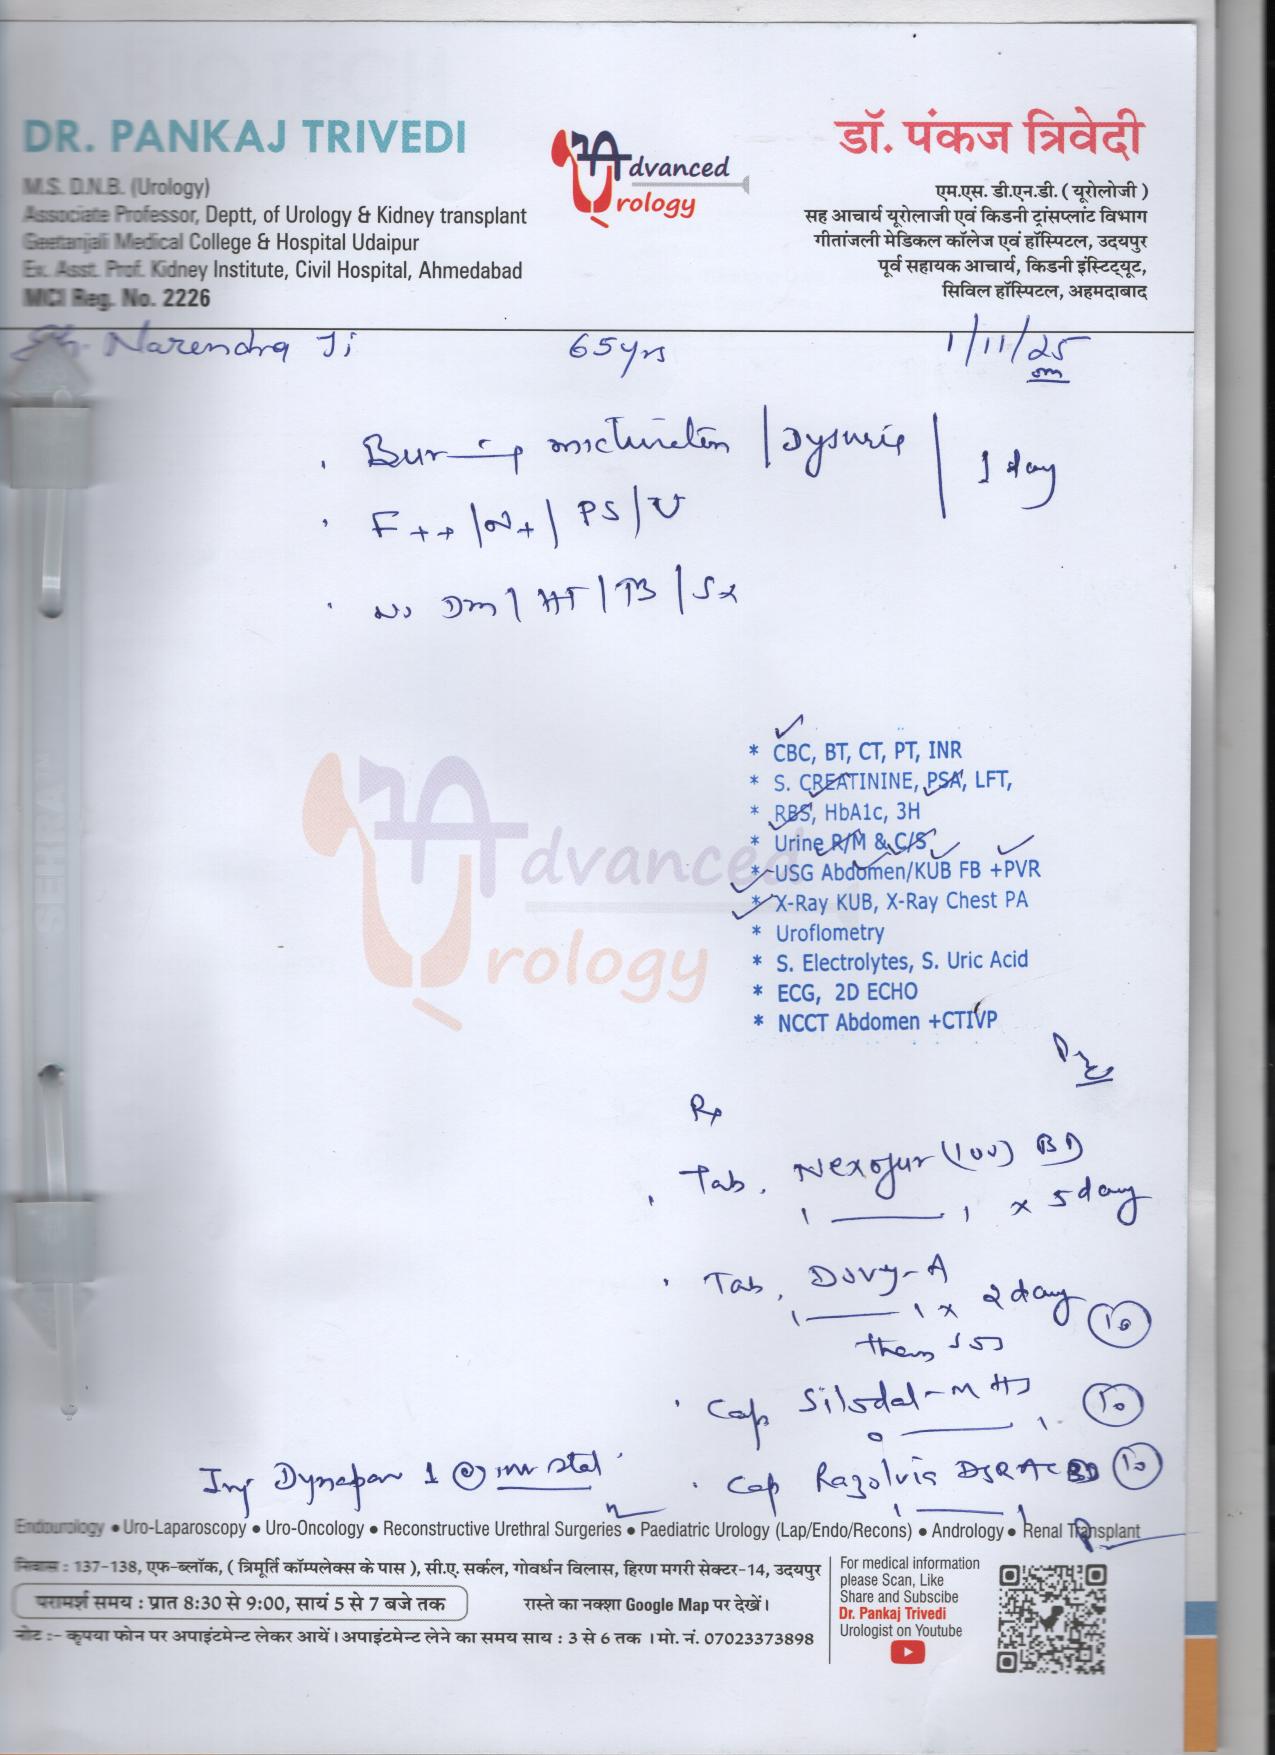 DR. PANKAJ TRIVEDI
M.S. D.N.B. (Urology)
Associate Professor, Deptt, of Urology & Kidney transplant
Geetanjali Medical College & Hospital Udaipur
Ex. Asst. Prof. Kidney Institute, Civil Hospital, Ahmedabad
MCI Reg. No. 2226
Advanced
Urology
डॉ. पंकज त्रिवेदी
एम.एस. डी.एन.डी. ( यूरोलोजी )
सह आचार्य यूरोलाजी एवं किडनी ट्रांसप्लांट विभाग
गीतांजली मेडिकल कॉलेज एवं हॉस्पिटल, उदयपुर
पूर्व सहायक आचार्य, किडनी इंस्टिट्यूट,
सिविल हॉस्पिटल, अहमदाबाद
Sh. Narendra Ji 65yrs 1/11/25
Burning micturition / Dysuria / 1 day
F++ / N+ / PS / U
No DM / HT / TB / Sx
Advanced
Urology
* CBC, BT, CT, PT, INR
* S. CREATININE, PSA, LFT,
* RBS, HbA1c, 3H
* Urine R/M & C/S
* USG Abdomen/KUB FB +PVR
* X-Ray KUB, X-Ray Chest PA
* Uroflometry
* S. Electrolytes, S. Uric Acid
* ECG, 2D ECHO
* NCCT Abdomen +CTIVP
Rx
Tab. (100) BD
1 — 1 x 5 day
Tab. -A
1 — 1 x 2 day
then SOS 10
Cap Silodal-M HS 10
0 — 1
Inj Dynapar 1 stat
Cap DSR AC BD 10
1 — 1
Endourology • Uro-Laparoscopy • Uro-Oncology • Reconstructive Urethral Surgeries • Paediatric Urology (Lap/Endo/Recons) • Andrology • Renal Transplant
निवास : 137-138, एफ-ब्लॉक, ( त्रिमूर्ति कॉम्पलेक्स के पास ), सी.ए. सर्कल, गोवर्धन विलास, हिरण मगरी सेक्टर-14, उदयपुर
परामर्श समय : प्रात 8:30 से 9:00, सायं 5 से 7 बजे तक
रास्ते का नक्शा Google Map पर देखें।
नोट :- कृपया फोन पर अपाइंटमेन्ट लेकर आयें। अपाइंटमेन्ट लेने का समय साय : 3 से 6 तक । मो. नं. 07023373898
For medical information
please Scan, Like
Share and Subscibe
Dr. Pankaj Trivedi
Urologist on Youtube